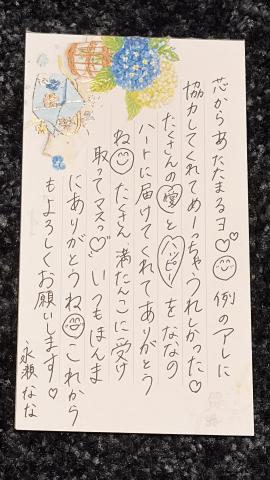 芯からあたたまるヨ♡♡☺例のアレに
協力してくれてめーっちゃうれしかった♡
たくさんの愛とハッピーをななの
ハートに届けてくれてありがとう
ね☺たくさん満たんこに受け
取ってマスっ♡"いつもほんま
にありがとうね☺これから
もよろしくお願いします♡
永瀬なな